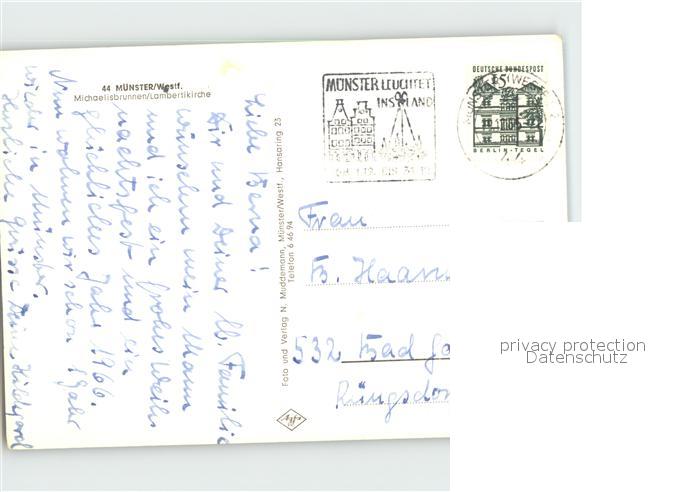 44 MÜNSTER/Westf.
Michaelisbrunnen/Lambertikirche
Liebe Berna!
Dir und Deiner lb. Familie
wünschen mein Mann
und ich ein frohes Weih
nachtsfest und ein
glückliches Jahr 1966.
Nun wohnen wir schon 1 Jahr
wieder in Münster.
Herzliche Grüsse Deine Hildegard
Foto und Verlag N. Muddemann, Münster/Westf., Hansaring 23
Telefon 6 46 94
MÜNSTER LEUCHTET
INS LAND
DEUTSCHE BUNDESPOST
15
BERLIN-TEGEL
44
Frau
B. Haam
532 Bad Go
Rüngsdor
privacy protection
Datenschutz